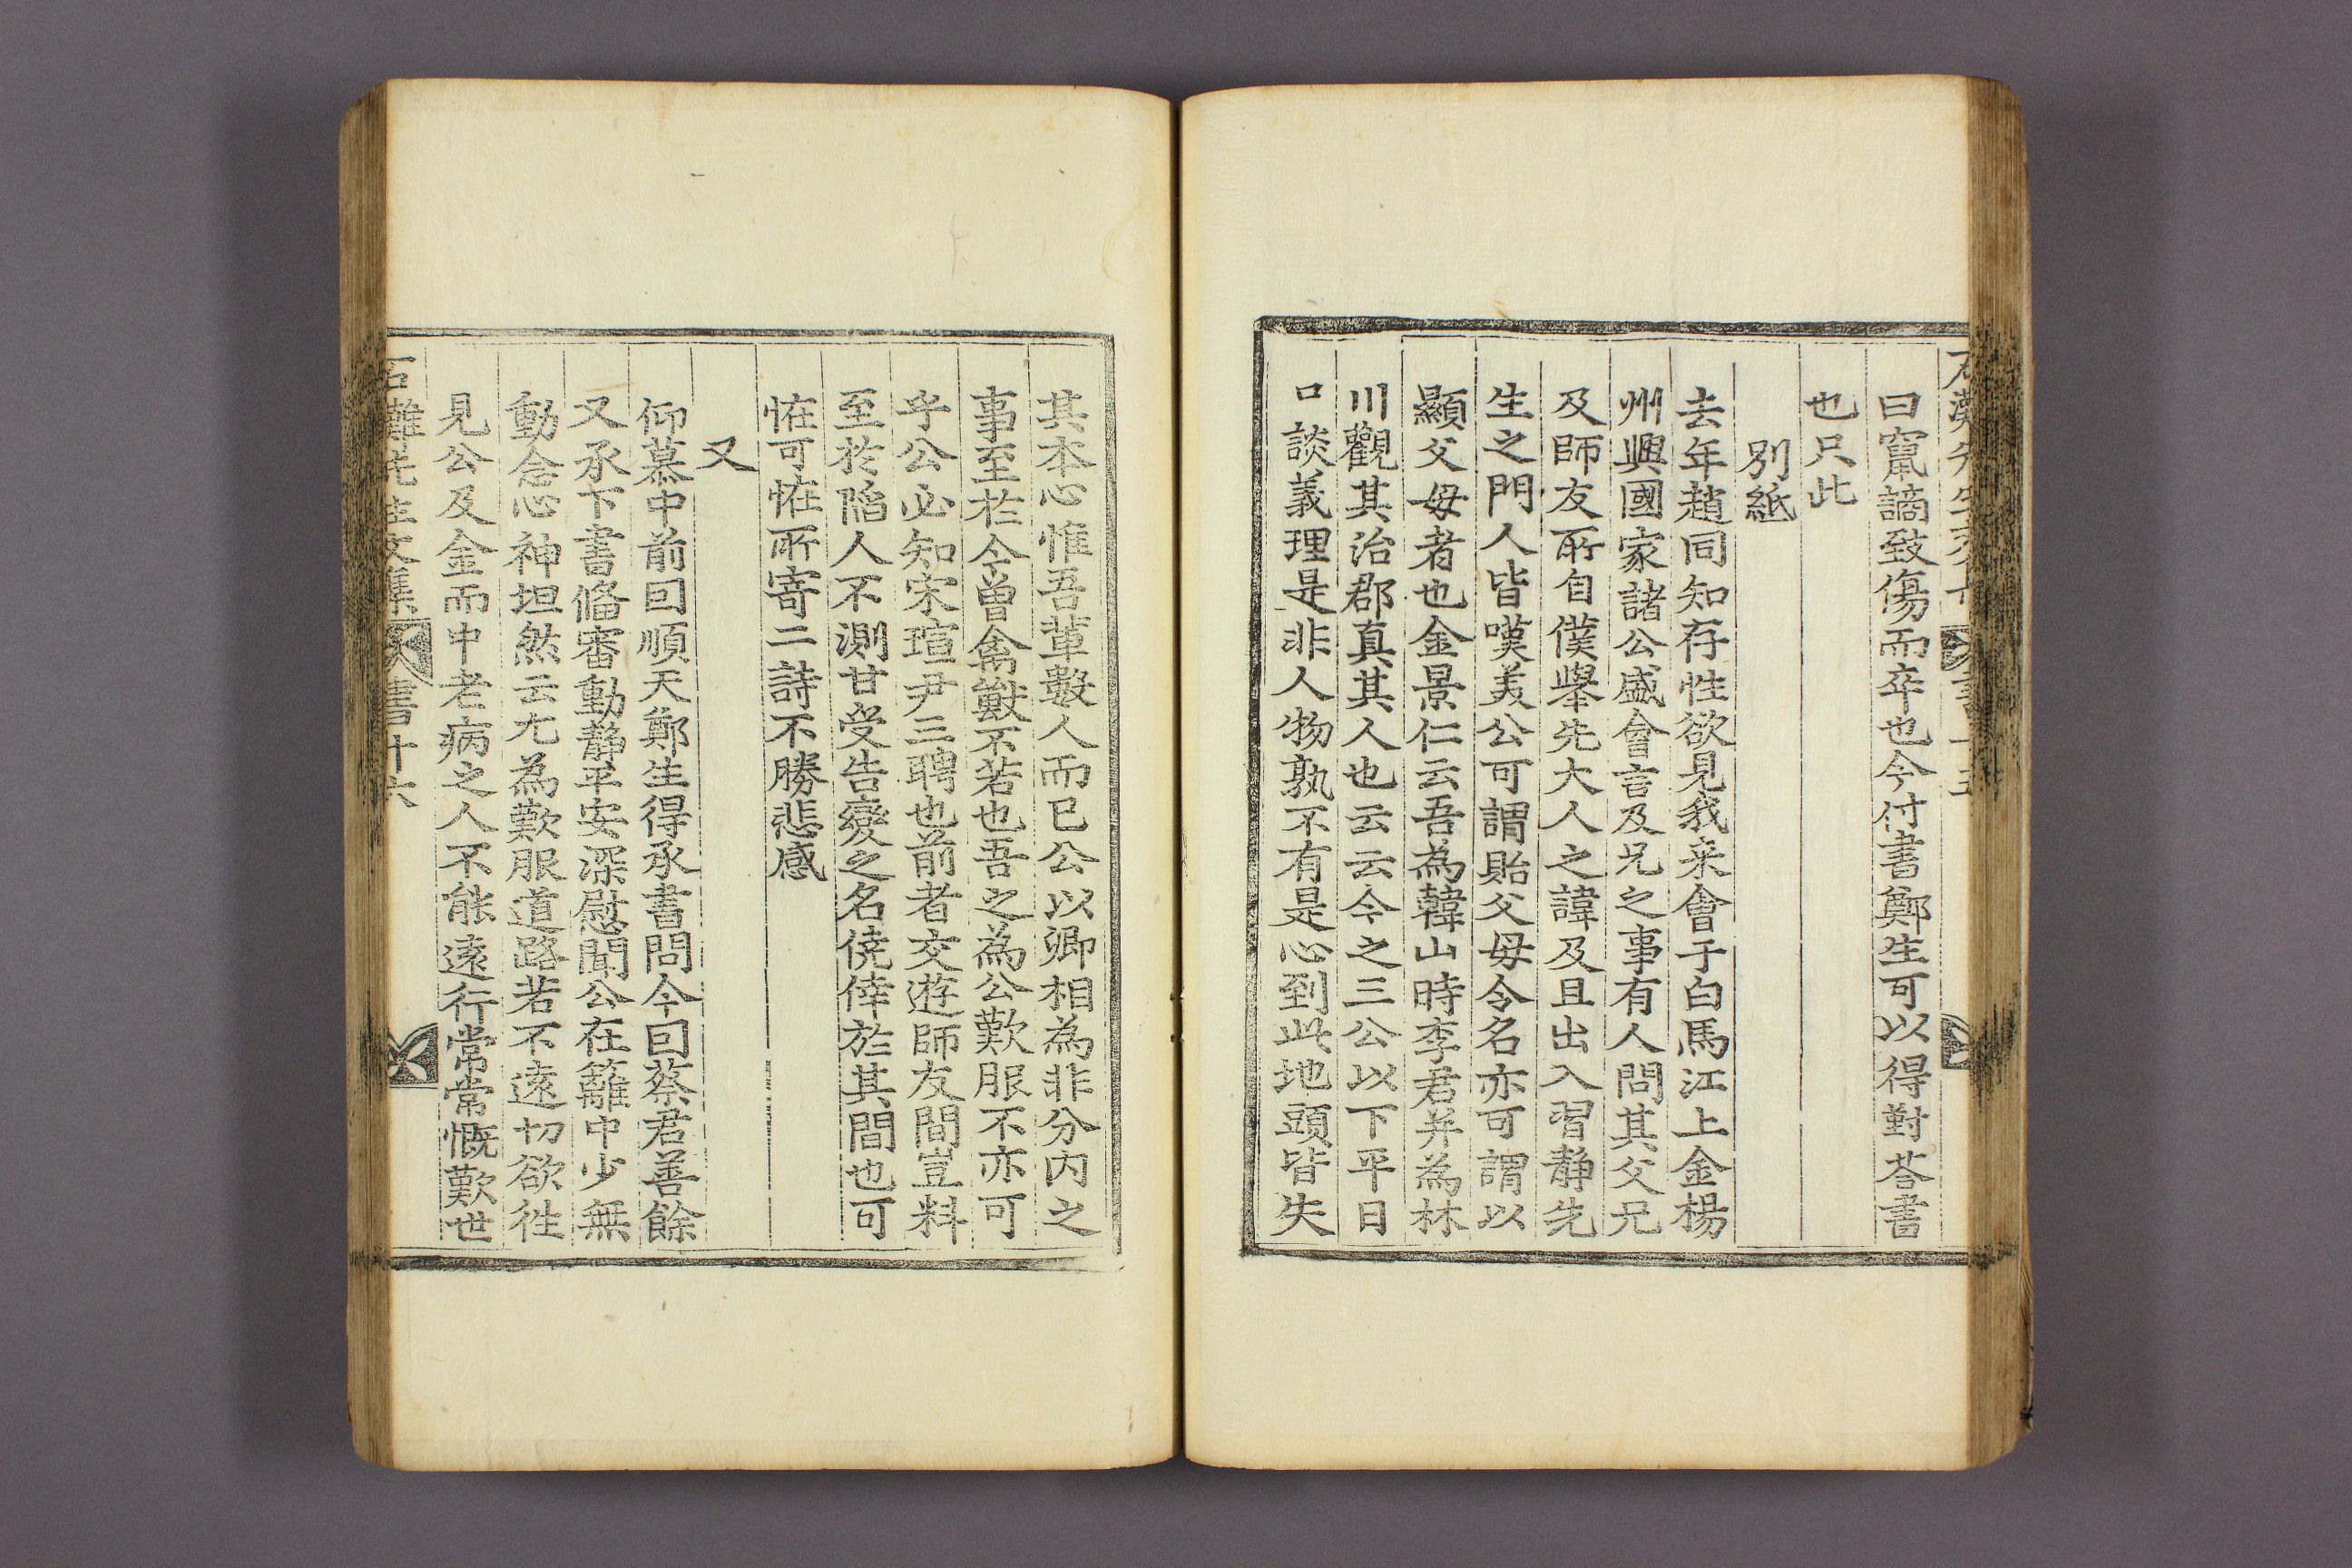 石灘先生文集 書十五
曰竄謫致傷而卒也今付書鄭生可以得對荅書
也只此
別紙
去年趙同知存性欲見我来會于白馬江上金楊
州興國家諸公盛會言及兄之事有人問其父兄
及師友所自僕擧先大人之諱及且出入習静先
生之門人皆嘆美公可謂貽父母令名亦可謂以
顯父母者也金景仁云吾為韓山時李君并為林
川觀其治郡真其人也云云今之三公以下平日
口談義理是非人物孰不有是心到此地頭皆失
其本心惟吾輩數人而已公以卿相為非分內之
事至於今曽禽獸不若也吾之為公歎服不亦可
乎公必知宋瑄尹三聘也前者交遊師友間豈料
至於陷人不測甘受告變之名僥倖於其間也可
恠可恠所寄二詩不勝悲感
又
仰慕中前回順天鄭生得承書問今回蔡君善餘
又承下書俻審動静平安深慰聞公在籬中少無
動念心神坦然云尤為歎服道路若不遠切欲徃
見公及金而中老病之人不能遠行常常慨歎世
石灘先生文集 書十六